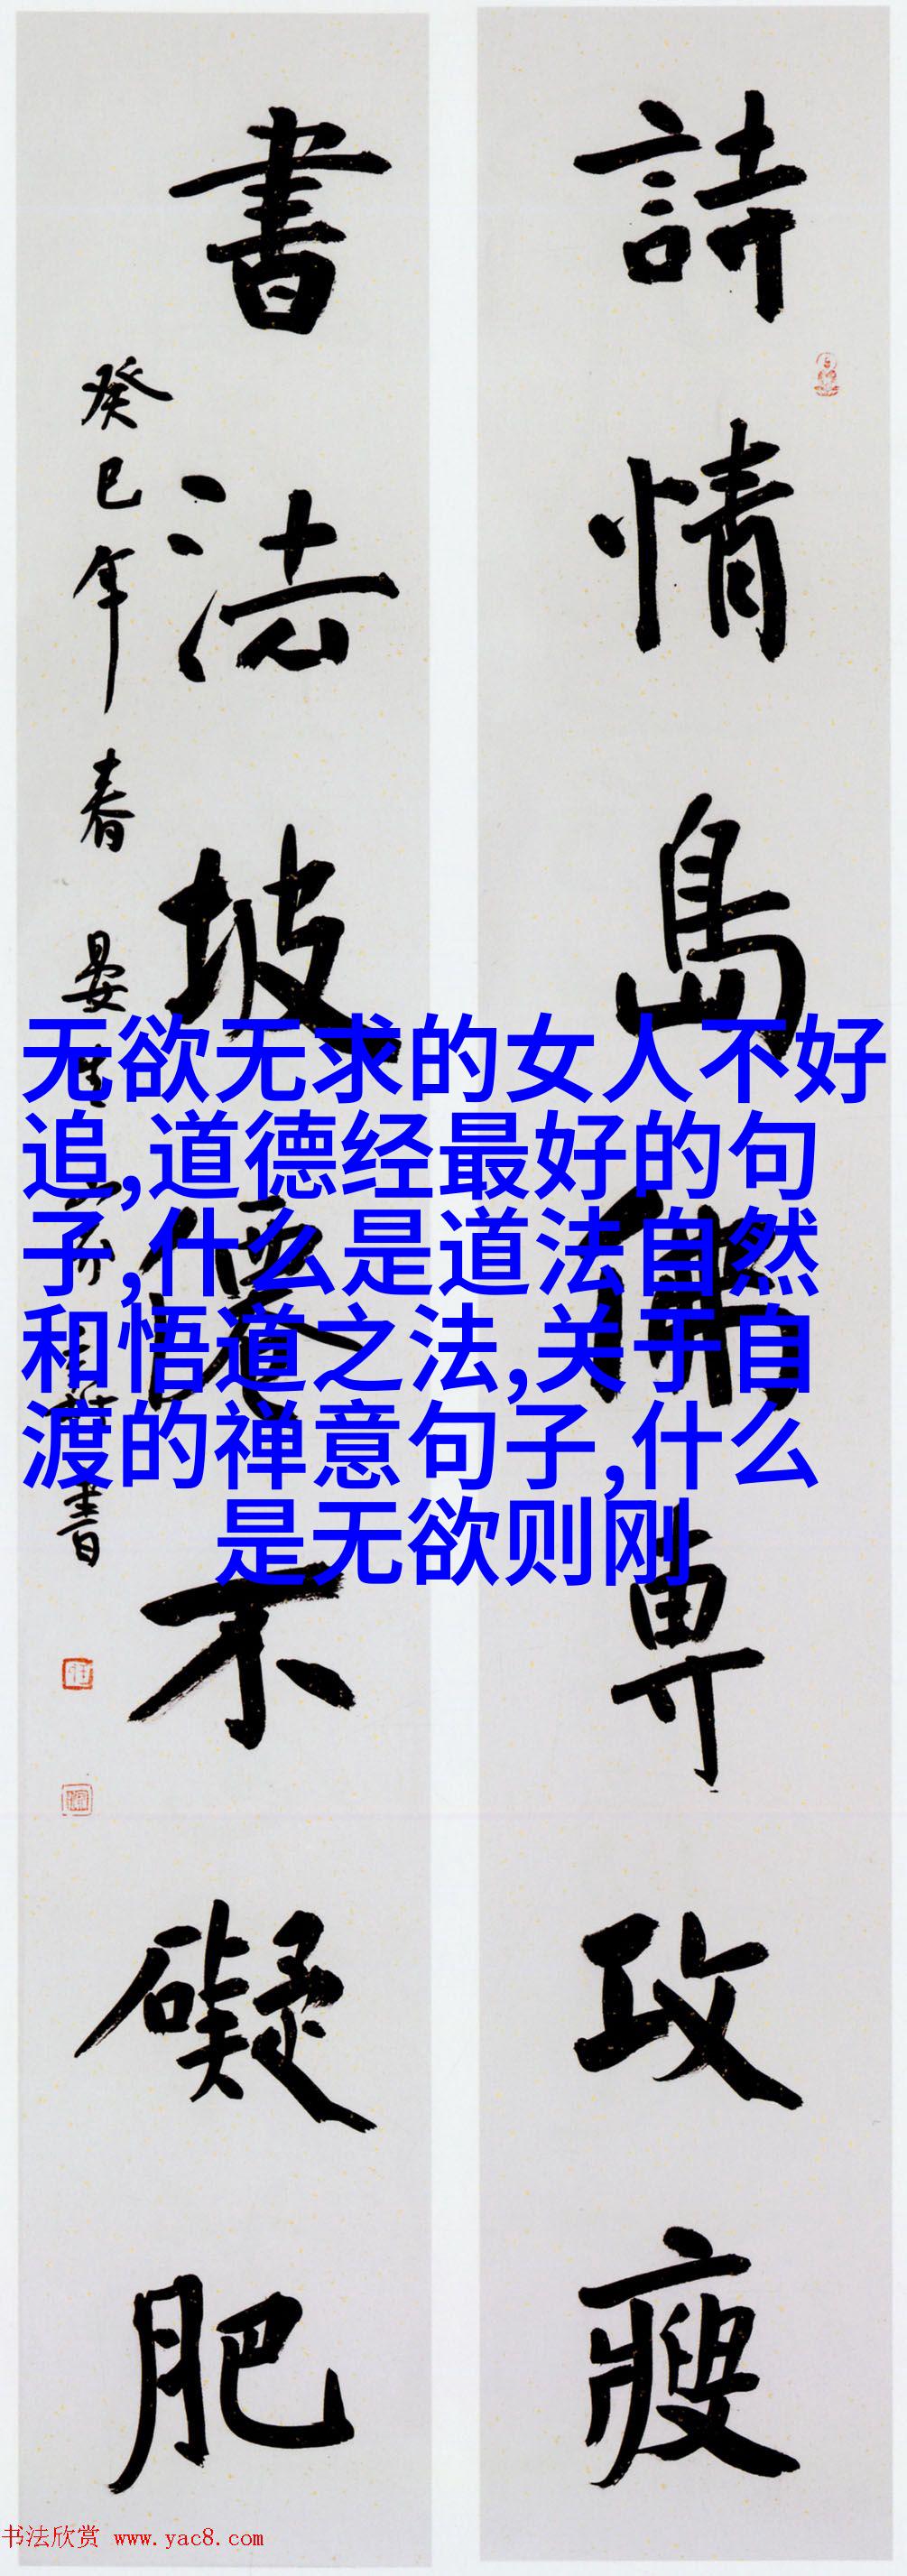 詩情島佛専攻瘦
書法坡僊不礙肥
癸巳年春晏
書
无欲无求的女人不好
追,道德经最好的句
子,什么是道法自然
和悟道之法,关于自
渡的禅意句子,什么
是无欲则刚
书法欣赏 www.yac8.com